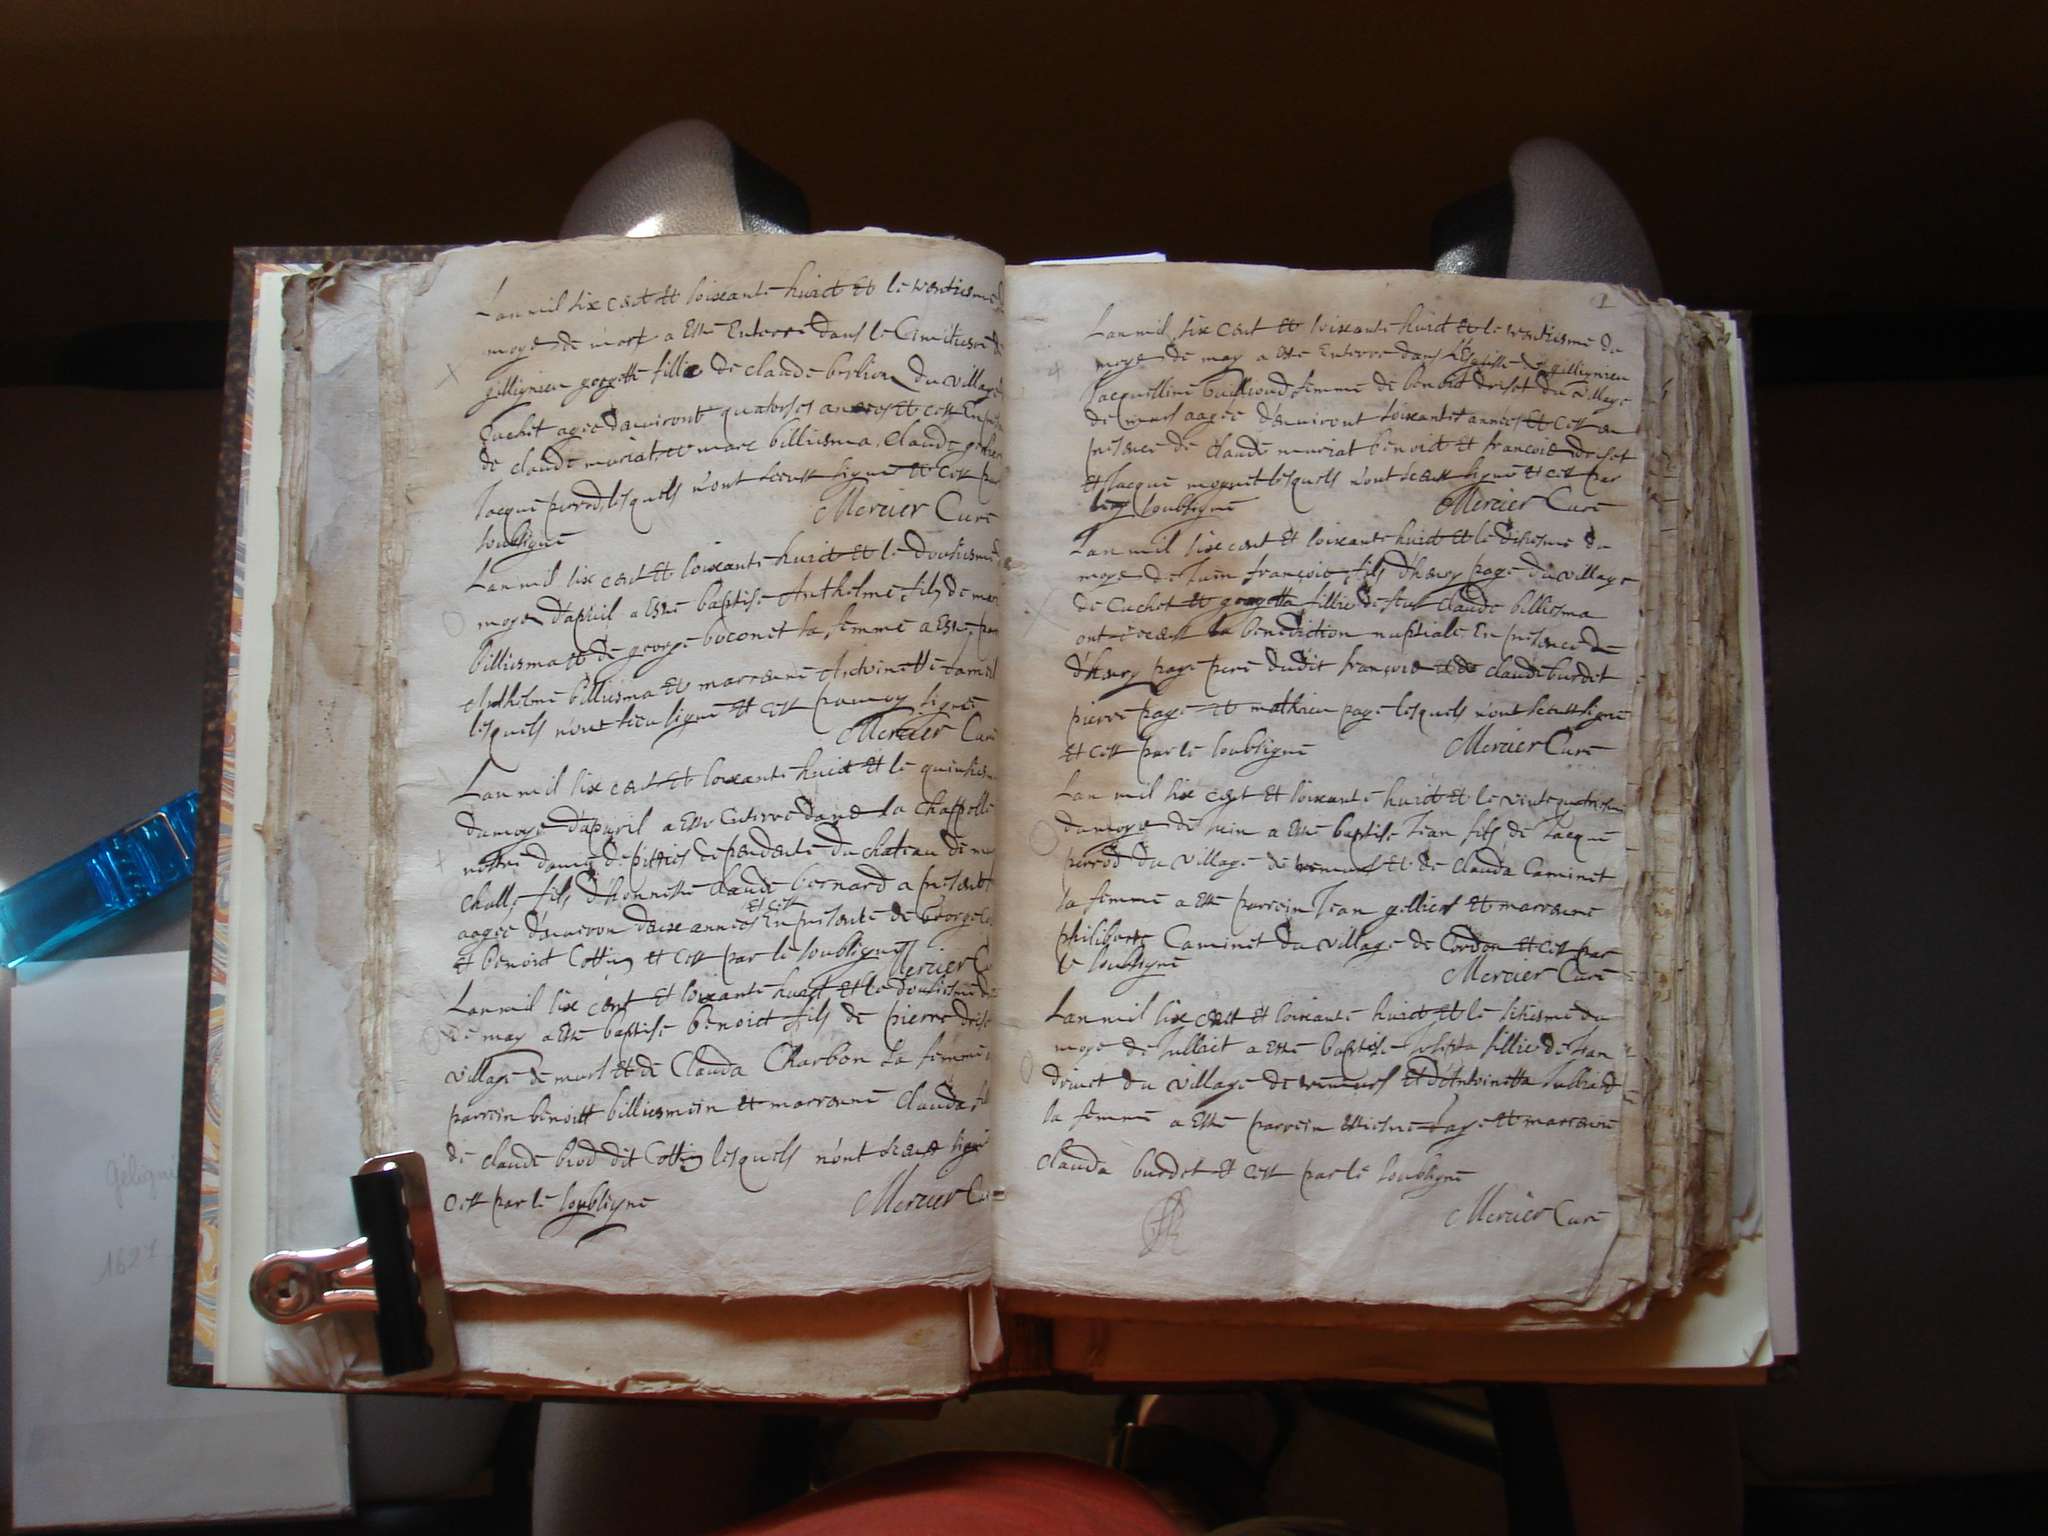 Lan mil six cent et soixante huict et le trentiesme
moys de mars a este Enterré dans le Cimitiere de
gillignieu gorgette fillie de claude berlion du village
Cuchet agee d'anviront quatorses annees et cest En
de claude muriat et marc billiema, claude
Jacque perrod, lesquels n'ont sceust signé et cest par
soubsigné Mercier Curé
Lan mil six cent et soixante huict et le dousiesme
moys d'apvril a esté baptisé Anthelme fils de marc
billiema et de george boconet sa femme a esté
Anthelme billiema et marraine Antoinette
lesquels n'ont sceu signé et cest par moy signé
Mercier Curé
Lan mil six cent et soixante huict et le quinsiesme
du moys d'apvril a esté Enterré dans la chappelle
nostre dame de pitties dependente du chateau de
fils d'honneste claude bernard a present
aagee d'anviron deux annees et cest En presance de George
et benoict Cottin et cest par le soubsigné Mercier Cu
Lan mil six cent et soixante huict et le dousiesme
de may a esté baptisé benoict fils de pierre
village de murs et de Clauda Charbon sa femme
parrein benoict billiemin et marraine clauda
de claude brod dit Cottin lesquels n'ont sceust signé
cest par le soubsigné Mercier Cu
Lan mil six cent et soixante huict et le trentiesme du
moys de may a esté Enterré dans l'Eglisse de gillignieu
Jacquelline Guillioud femme de benoit driset du village
de murs aagee d'anviront soixante annees et cest en
presance de claude muriat benoict et françois driset
et Jacque monet lesquels n'ont sceust signé et cest par
le soubsigné Mercier Curé
Lan mil six cent et soixante huict et le disiesme du
moys de Juin françois fils d'henry page du village
de cuchet et gorgetta fillie de feu claude billiema
ont receust la benediction nuptiale En presence de
d'henry page pere dudit françois et de claude burdet
pierre page et mathieu page lesquels n'ont sceust signé
et cest par le soubsigné Mercier Curé
Lan mil six cent et soixante huict et le vintequatriesme
du moys de Juin a esté baptisé Jean fils de Jacque
perrod du village de murs et de clauda Caminet
sa femme a esté parrein Jean gellier et marraine
philiberte Caminet du village de Cordon et cest par
le soubsigné Mercier Curé
Lan mil six cent et soixante huict et le sisiesme du
moys de Julliet a esté baptisée Josepta fillie de Jean
drivet du village de murs et d'Antoinetta Julliard
sa femme a esté parrein estiene page et marraine
clauda burdet et cest par le soubsigné
Mercier Curé
1627